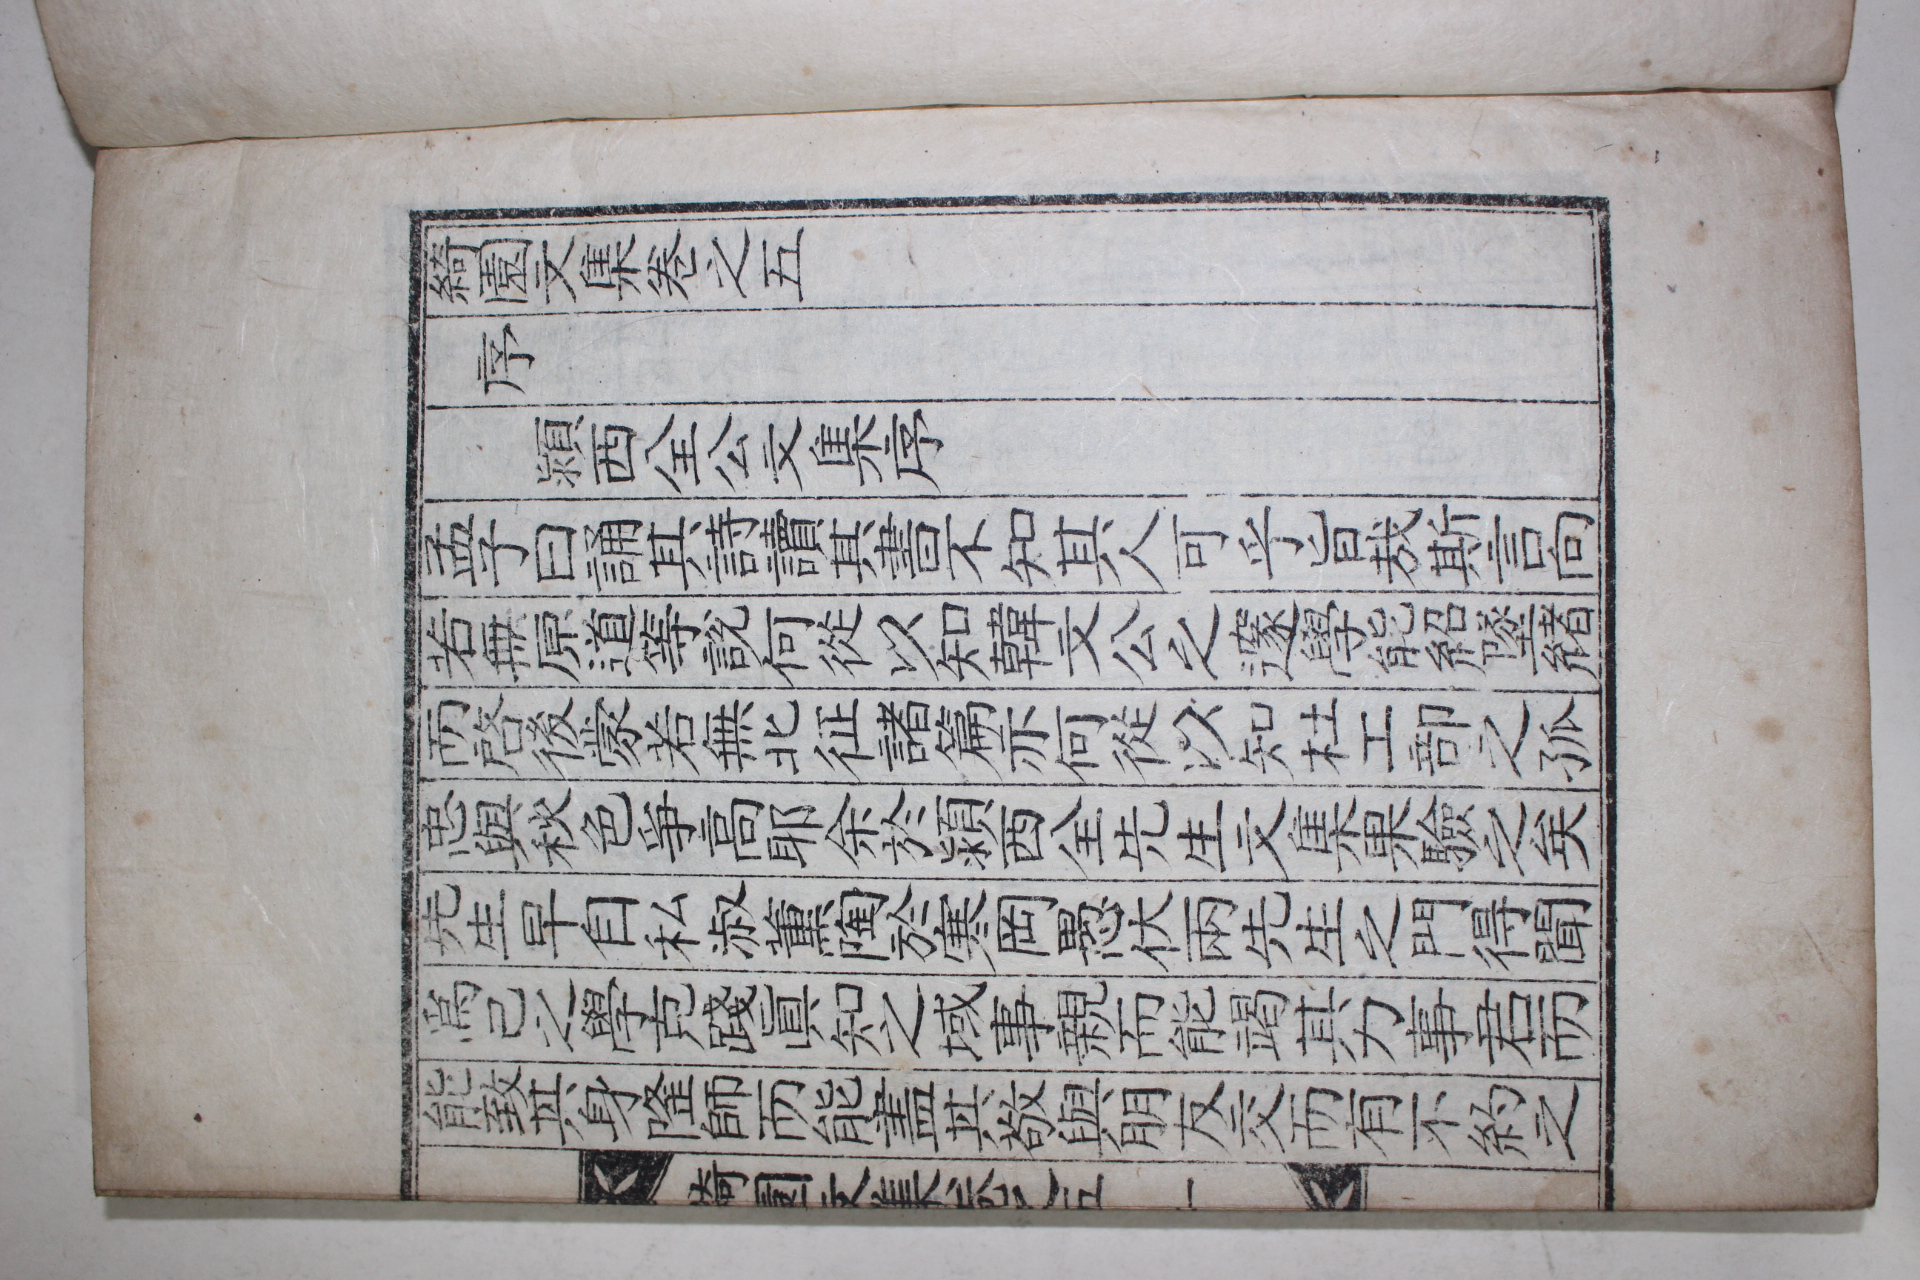 綺園文集卷之五
序
潁西全公文集序
孟子曰誦其詩讀其書不知其人可乎旨哉斯言向
若無原道等說何從以知韓文公之邃學能紹墜緖
而啓後蒙若無北征諸篇亦何從以知杜工部之孤
忠與秋色爭高耶余於潁西全先生文集果驗之矣
先生早自私淑薰陶於寒岡愚伏兩先生之門得聞
爲己之學克踐眞知之域事親而能竭其力事君而
能致其身隆師而能盡其敬與朋友交而有不約之
綺園文集卷之五 一